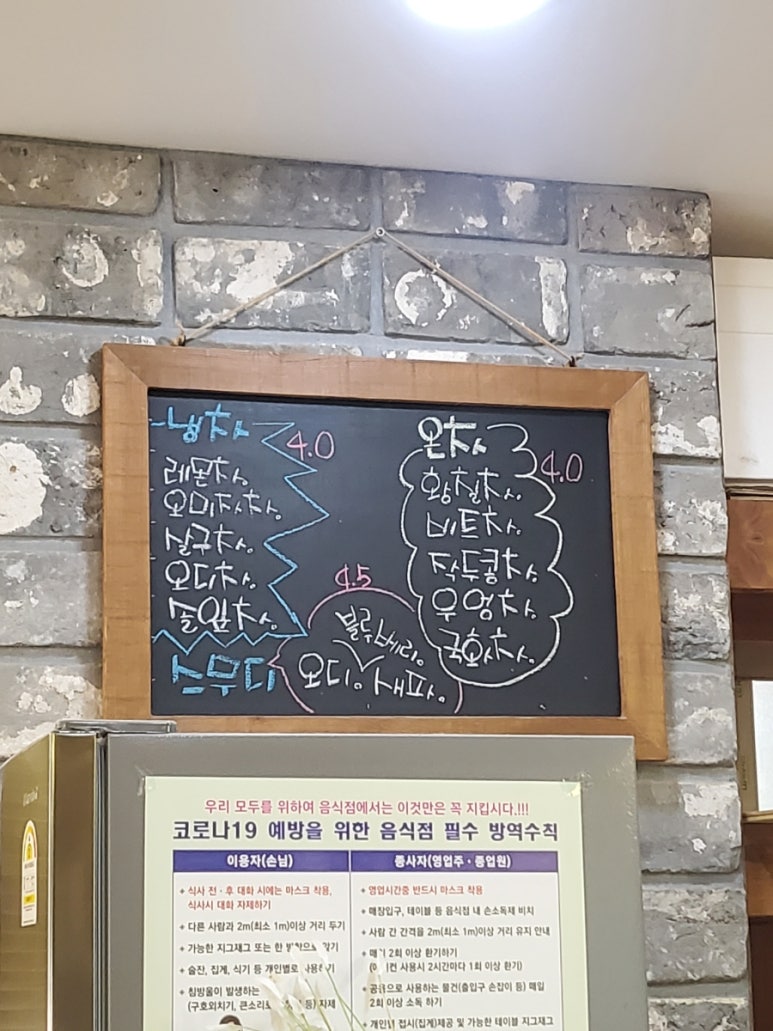 냉차 4.0
레몬차.
오미자차.
살구차.
오디차.
솔잎차.
온차 4.0
황칠차.
비트차.
작두콩차.
우엉차.
국화차.
스무디
4.5
블루베리.
오디. 새파.
우리 모두를 위하여 음식점에서는 이것만은 꼭 지킵시다.!!!
코로나19 예방을 위한 음식점 필수 방역수칙
이용자(손님)
+ 식사 전 · 후 대화 시에는 마스크 착용,
식사시 대화 자제하기
+ 다른 사람과 2m(최소 1m)이상 거리 두기
+ 가능한 지그재그 또는 한 방향으로 앉기
+ 술잔, 집게, 식기 등 개인별로 사용하기
+ 침방울이 발생하는
(구호외치기, 큰소리로 등) 자제
종사자(영업주 · 종업원)
+ 영업시간중 반드시 마스크 착용
+ 매장입구, 테이블 등 음식점 내 손소독제 비치
+ 사람 간 간격을 2m(최소 1m)이상 거리 유지 안내
+ 매일 2회 이상 환기하기
(에어컨 사용시 2시간마다 1회 이상 환기)
+ 공용으로 사용하는 물건(출입구 손잡이 등) 매일
2회 이상 소독 하기
+ 개인별 접시(집게)제공 및 가능한 테이블 지그재그